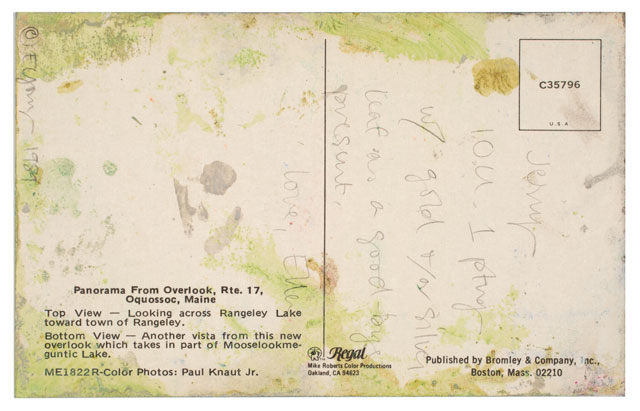 C35796
U.S.A
I.O.U. 1 ptng
w/ gold &/or silver
leaf as a good bye
present.
love,
©
Panorama From Overlook, Rte. 17,
Oquossoc, Maine
Top View — Looking across Rangeley Lake
toward town of Rangeley.
Bottom View — Another vista from this new
overlook which takes in part of Mooselookme-
guntic Lake.
ME1822R-Color Photos: Paul Knaut Jr.
Regal
Mike Roberts Color Productions
Oakland, CA 94623
Published by Bromley & Company, Inc.,
Boston, Mass. 02210